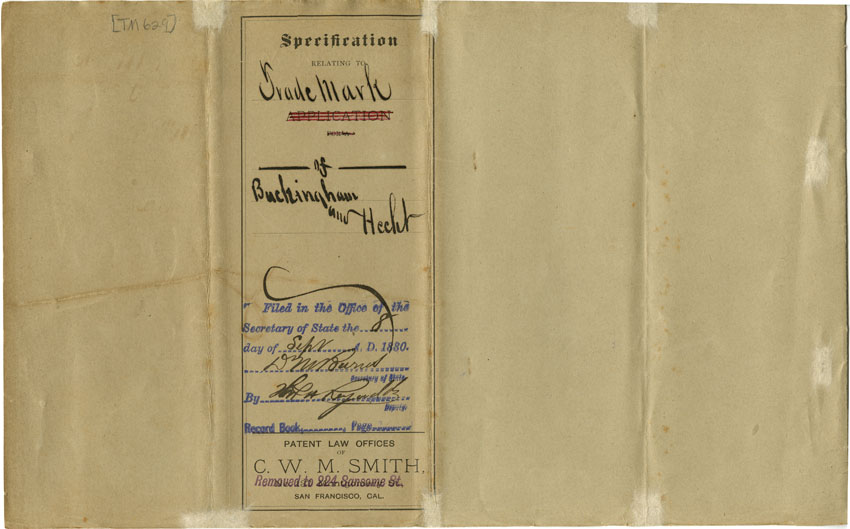 [TM 629]
Specification
RELATING TO
Trade Mark
APPLICATION
of
Buckingham
and
Hecht
Filed in the Office of the
Secretary of State the 8
day of Sept A. D. 1880.
D M Burns
Secretary of State
By Thos H Reynolds
Deputy
Record Book, Page
PATENT LAW OFFICES
OF
C. W. M. SMITH,
Removed to 224 Sansome St.
SAN FRANCISCO, CAL.